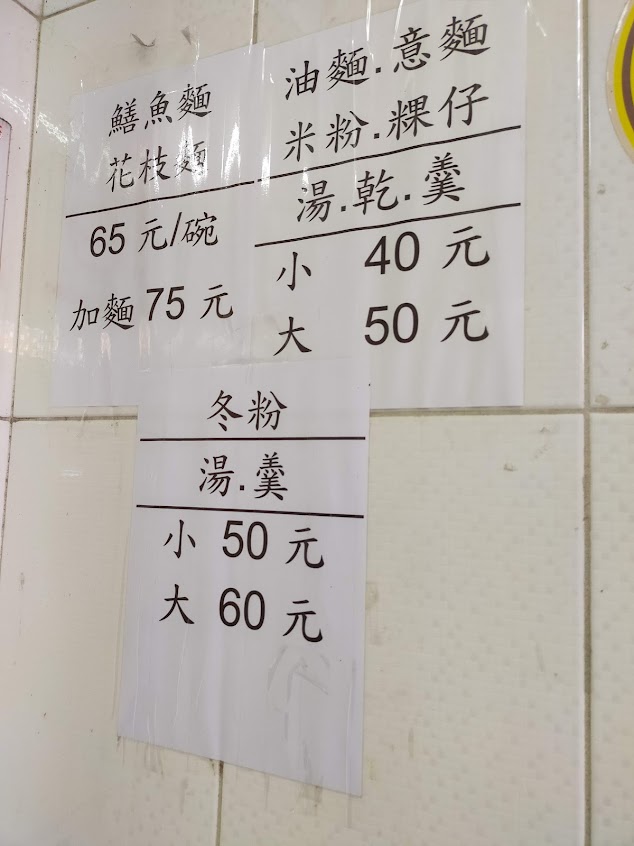 鱔魚麵
花枝麵
65 元/碗
加麵 75 元
油麵.意麵
米粉.粿仔
湯.乾.羹
小 40 元
大 50 元
冬粉
湯.羹
小 50 元
大 60 元